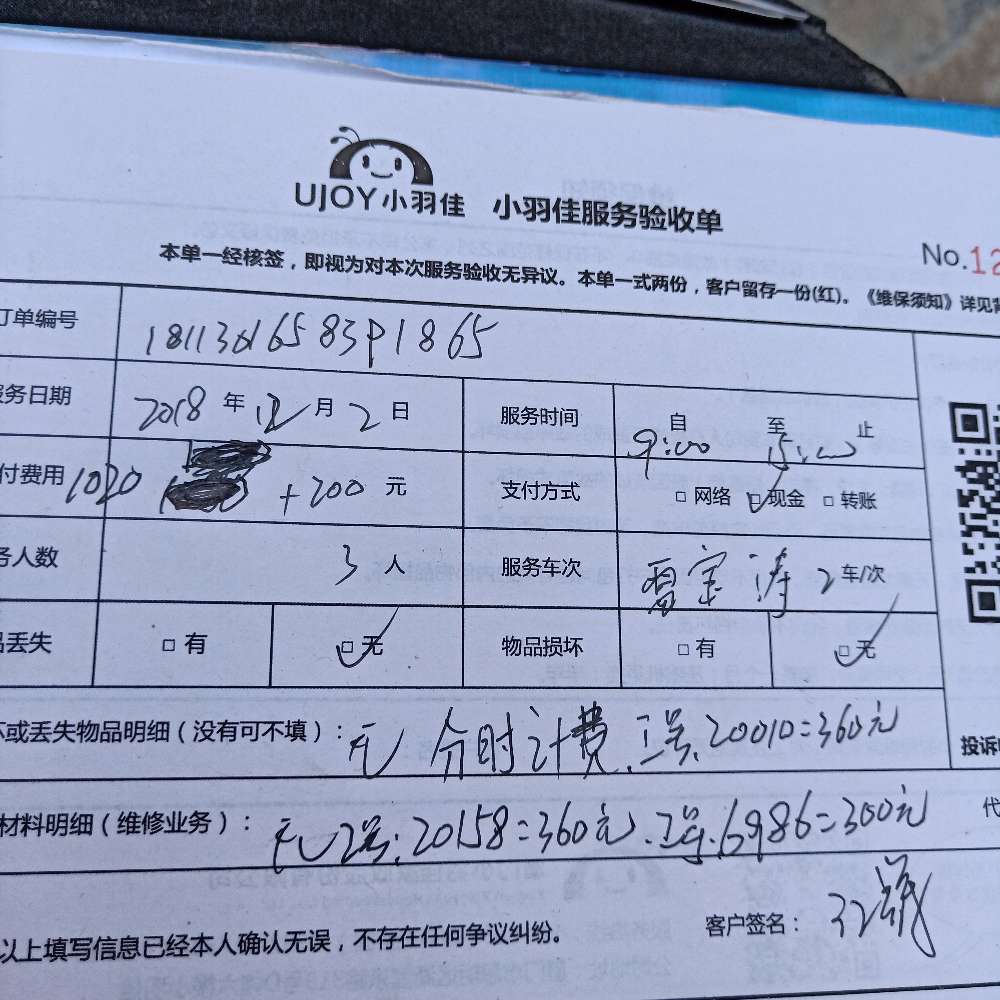 UJOY小羽佳 小羽佳服务验收单
No.12
本单一经核签，即视为对本次服务验收无异议。本单一式两份，客户留存一份(红)。《维保须知》详见背
订单编号
服务日期 2018 年 12 月 2 日 服务时间 自 9:00 至 15:00 止
付费用 1020 +200 元 支付方式 □ 网络 □ 现金 □ 转账
务人数 3 人 服务车次 2 车/次
品丢失 □ 有 □ 无 物品损坏 □ 有 □ 无
坏或丢失物品明细（没有可不填）：无 分时计费. 工号.20010=360元
投诉
材料明细（维修业务）：无 工号:20158=360元. 工号:6986=300元
代
以上填写信息已经本人确认无误，不存在任何争议纠纷。 客户签名：